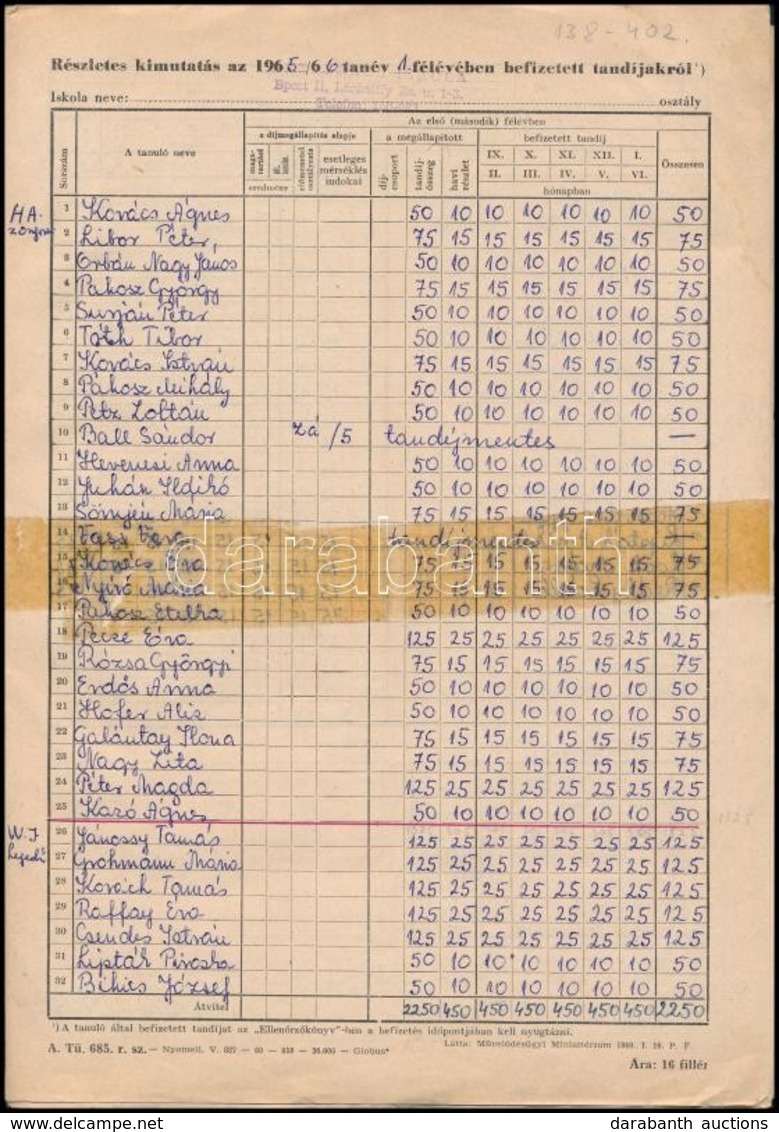 138-402.
Részletes kimutatás az 1965/66 tanév 1 félévében befizetett tandíjakról¹)
Iskola neve: osztály
Az első (második) félévben
Sorszám A tanuló neve a díjmegállapítás alapja a megállapított befizetett tandíj Összesen
esetleges mérséklés indokai díjcsoport tandíjösszeg havi részlet IX. X. XI. XII. I.
eredmény II. III. IV. V. VI.
hónapban
HA. 1 Kovács Ágnes 50 10 10 10 10 10 10 50
zongora 2 Libor Péter, 75 15 15 15 15 15 15 75
3 Orbán Nagy János 50 10 10 10 10 10 10 50
4 Pakosz György 75 15 15 15 15 15 15 75
5 Surján Péter 50 10 10 10 10 10 10 50
6 Tóth Tibor 50 10 10 10 10 10 10 50
7 Kovács István 75 15 15 15 15 15 15 75
8 Pákosz Mihály 50 10 10 10 10 10 10 50
9 Petz Zoltán 50 10 10 10 10 10 10 50
10 Ball Sándor zá /5 tandíjmentes —
11 Hevenesi Anna 50 10 10 10 10 10 10 50
12 Juhár Ildikó 50 10 10 10 10 10 10 50
13 Sömjén Mária 75 15 15 15 15 15 15 75
14 Vass Éva tandíjmentes —
15 Kovács Éva 75 15 15 15 15 15 15 75
16 Nyirő Mária 75 15 15 15 15 15 15 75
17 Pakosz Etelka 50 10 10 10 10 10 10 50
18 Pecze Éva 125 25 25 25 25 25 25 125
19 Rózsa Györgyi 75 15 15 15 15 15 15 75
20 Erdős Anna 50 10 10 10 10 10 10 50
21 Hofer Aliz 50 10 10 10 10 10 10 50
22 Galántay Ilona 75 15 15 15 15 15 15 75
23 Nagy Zita 75 15 15 15 15 15 15 75
24 Péter Magda 125 25 25 25 25 25 25 125
25 Kazó Ágnes 50 10 10 10 10 10 10 50
W.J 26 Jánossy Tamás 125 25 25 25 25 25 25 125
hegedű 27 Grohmann Mária 125 25 25 25 25 25 25 125
28 Kovách Tamás 125 25 25 25 25 25 25 125
29 Raffay Éva 125 25 25 25 25 25 25 125
30 Csendes István 125 25 25 25 25 25 25 125
31 Lipták Piroska 50 10 10 10 10 10 10 50
32 Bihics József 50 10 10 10 10 10 10 50
Átvitel 2250 450 450 450 450 450 450 2250
¹) A tanuló által befizetett tandíjat az „Ellenőrzőkönyv"-ben a befizetés időpontjában kell nyugtázni.
A. Tü. 685. r. sz. — Nyomell. V. 627 — 60 — 36.000 — Globus Látta: Művelődésügyi Minisztérium 1960. I. P. F.
Ára: 16 fillér
darabanth
www.darabanth.com darabanth auctions